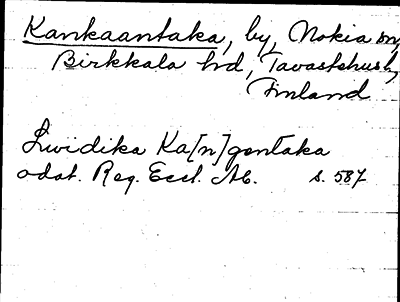 Kankaantaka, by, Nokia sn,
Birkkala hd, Tavastehus l,
Finland
Lwidika Ka[n]gentaka
odat. Reg. Eccl. Ab. s. 587